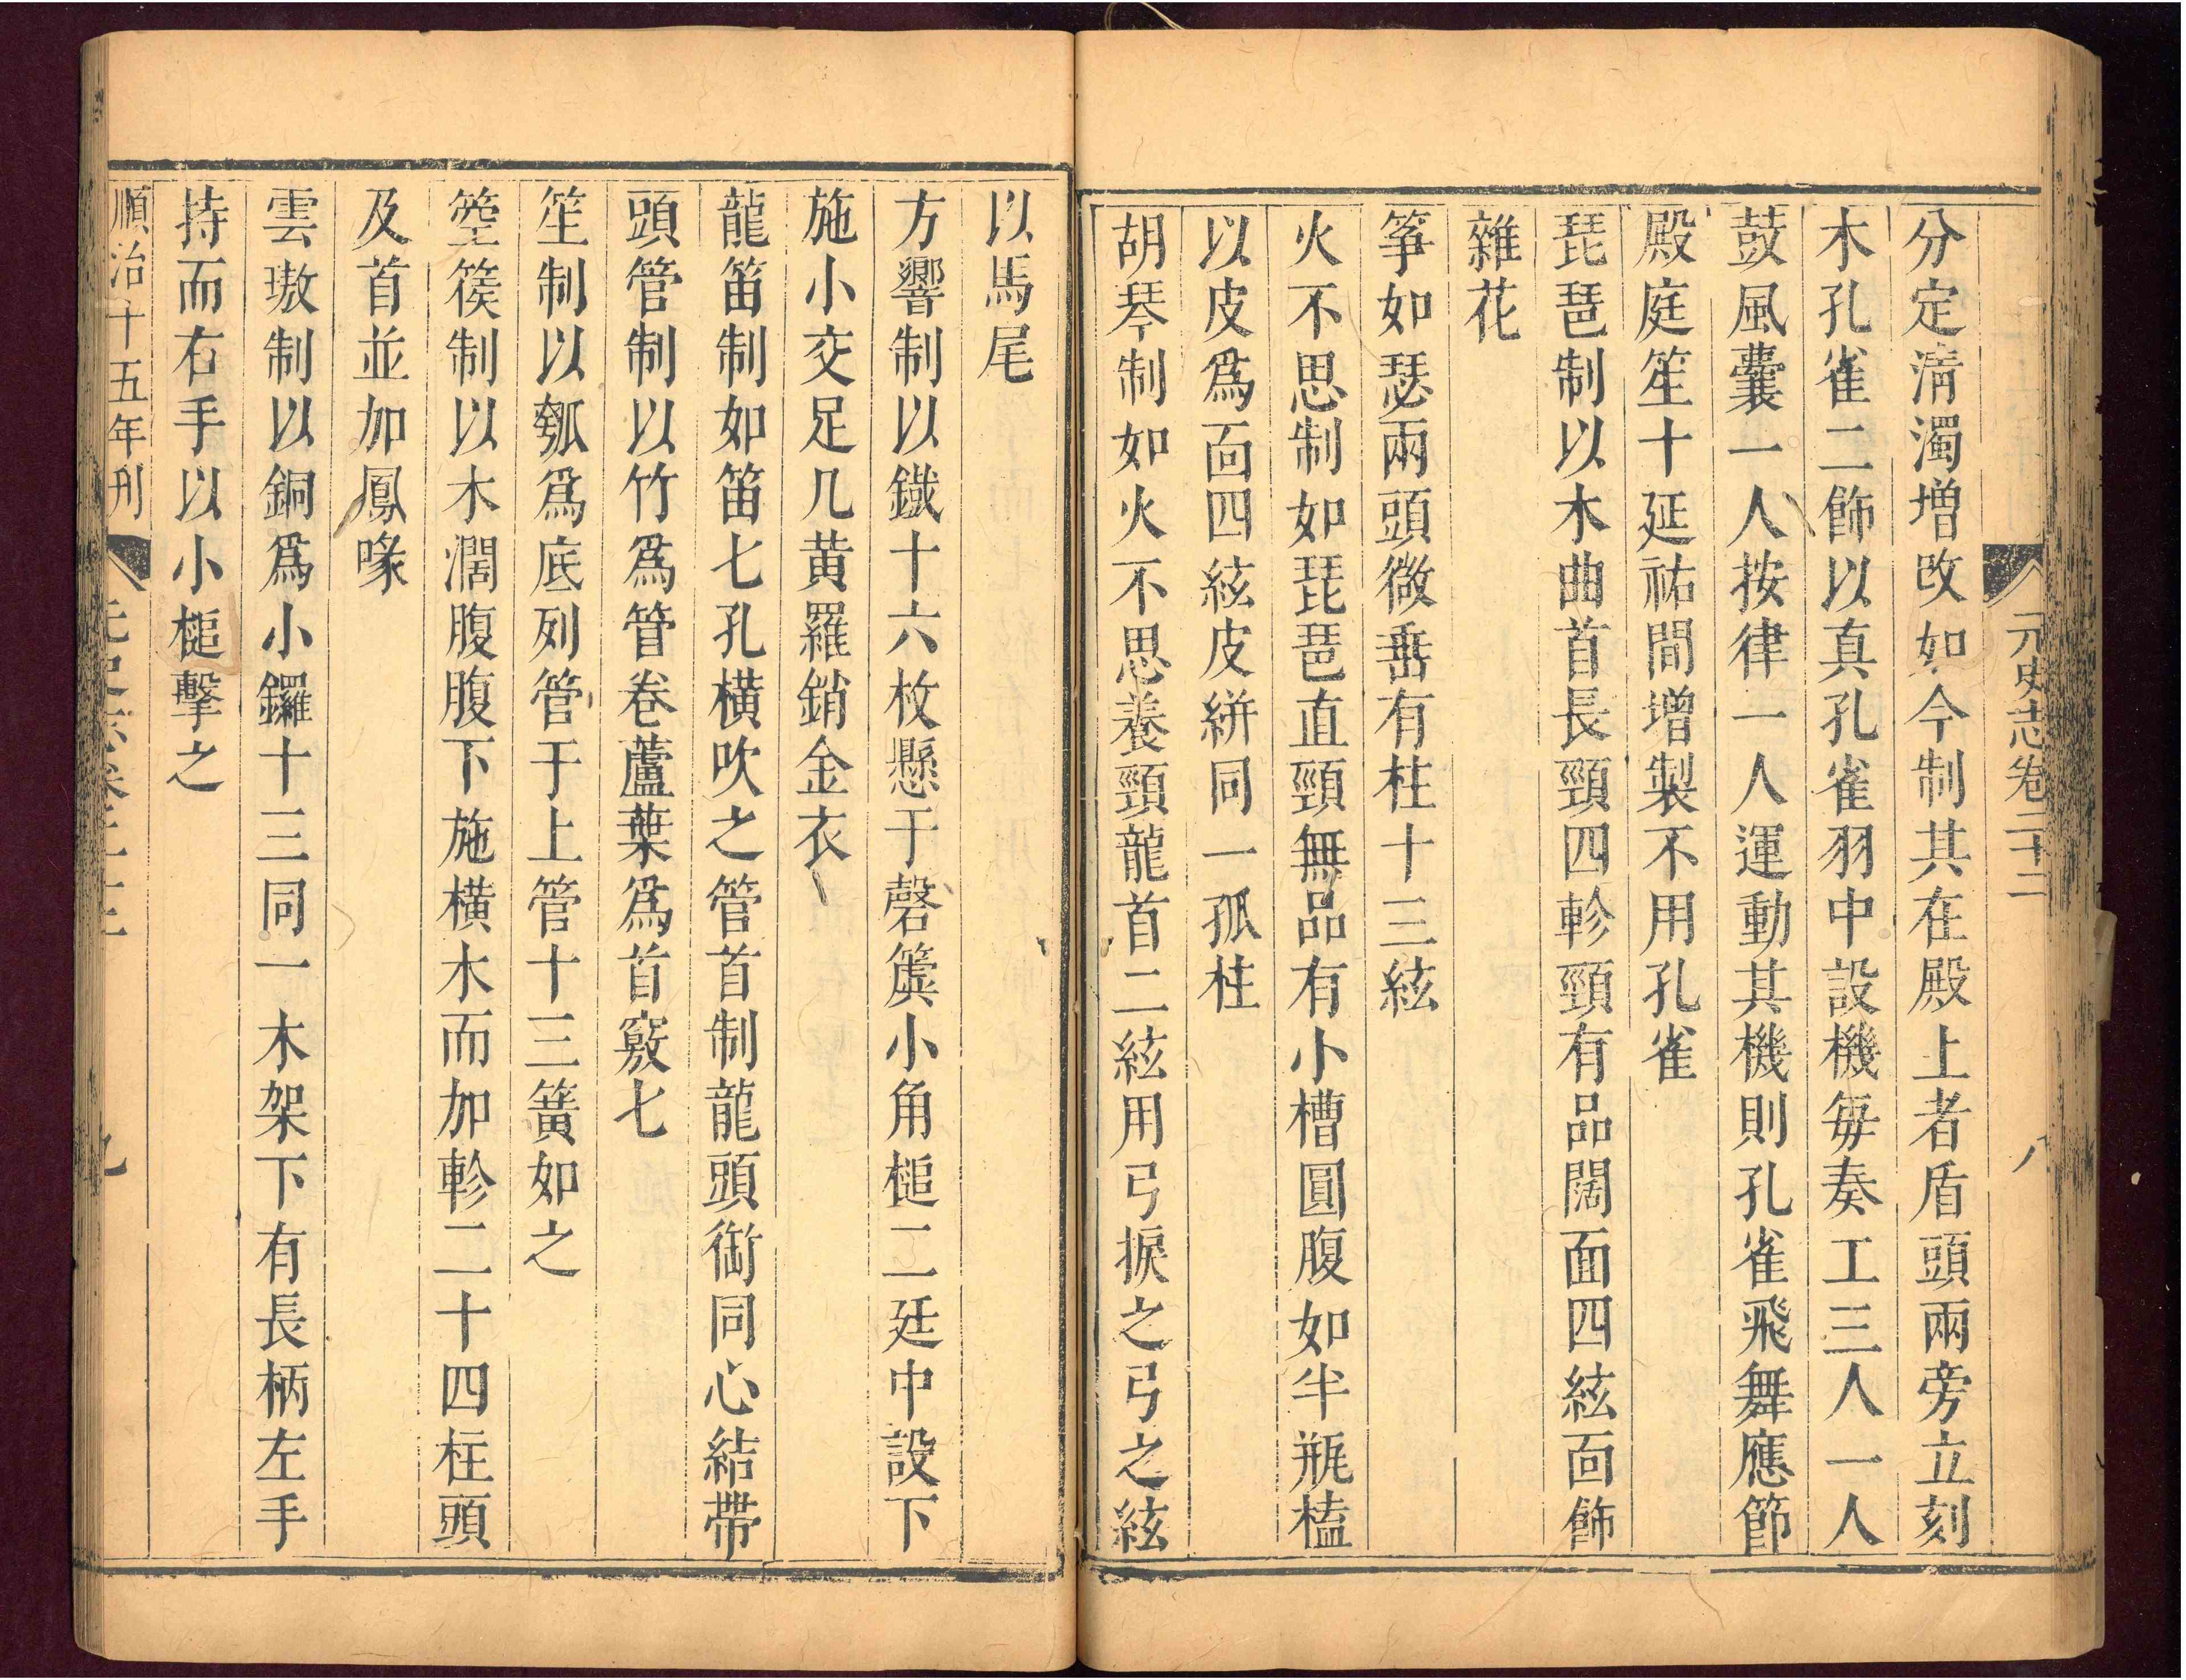 元史志卷二十二 八
分定清濁增改如今制其在殿上者盾頭兩旁立刻
木孔雀二飾以真孔雀羽中設機每奏工三人一人
鼓風囊一人按律一人運動其機則孔雀飛舞應節
殿庭笙十延祐間增製不用孔雀
琵琶制以木曲首長頸四軫頸有品闊面四絃面飾
雜花
箏如瑟兩頭微垂有柱十三絃
火不思制如琵琶直頸無品有小槽圓腹如半瓶榼
以皮為面四絃皮絣同一孤柱
胡琴制如火不思養頸龍首二絃用弓捩之弓之絃
以馬尾
方響制以鐵十六枚懸于磬簴小角槌二廷中設下
施小交足几黄羅銷金衣
龍笛制如笛七孔橫吹之管首制龍頭銜同心結帶
頭管制以竹為管卷蘆葉為首竅七
笙制以匏為底列管于上管十三簧如之
箜篌制以木濶腹腹下施橫木而加軫二十四柱頭
及首並加鳳喙
雲璈制以銅為小鑼十三同一木架下有長柄左手
持而右手以小槌擊之
順治十五年刊 元史志卷二十二 九